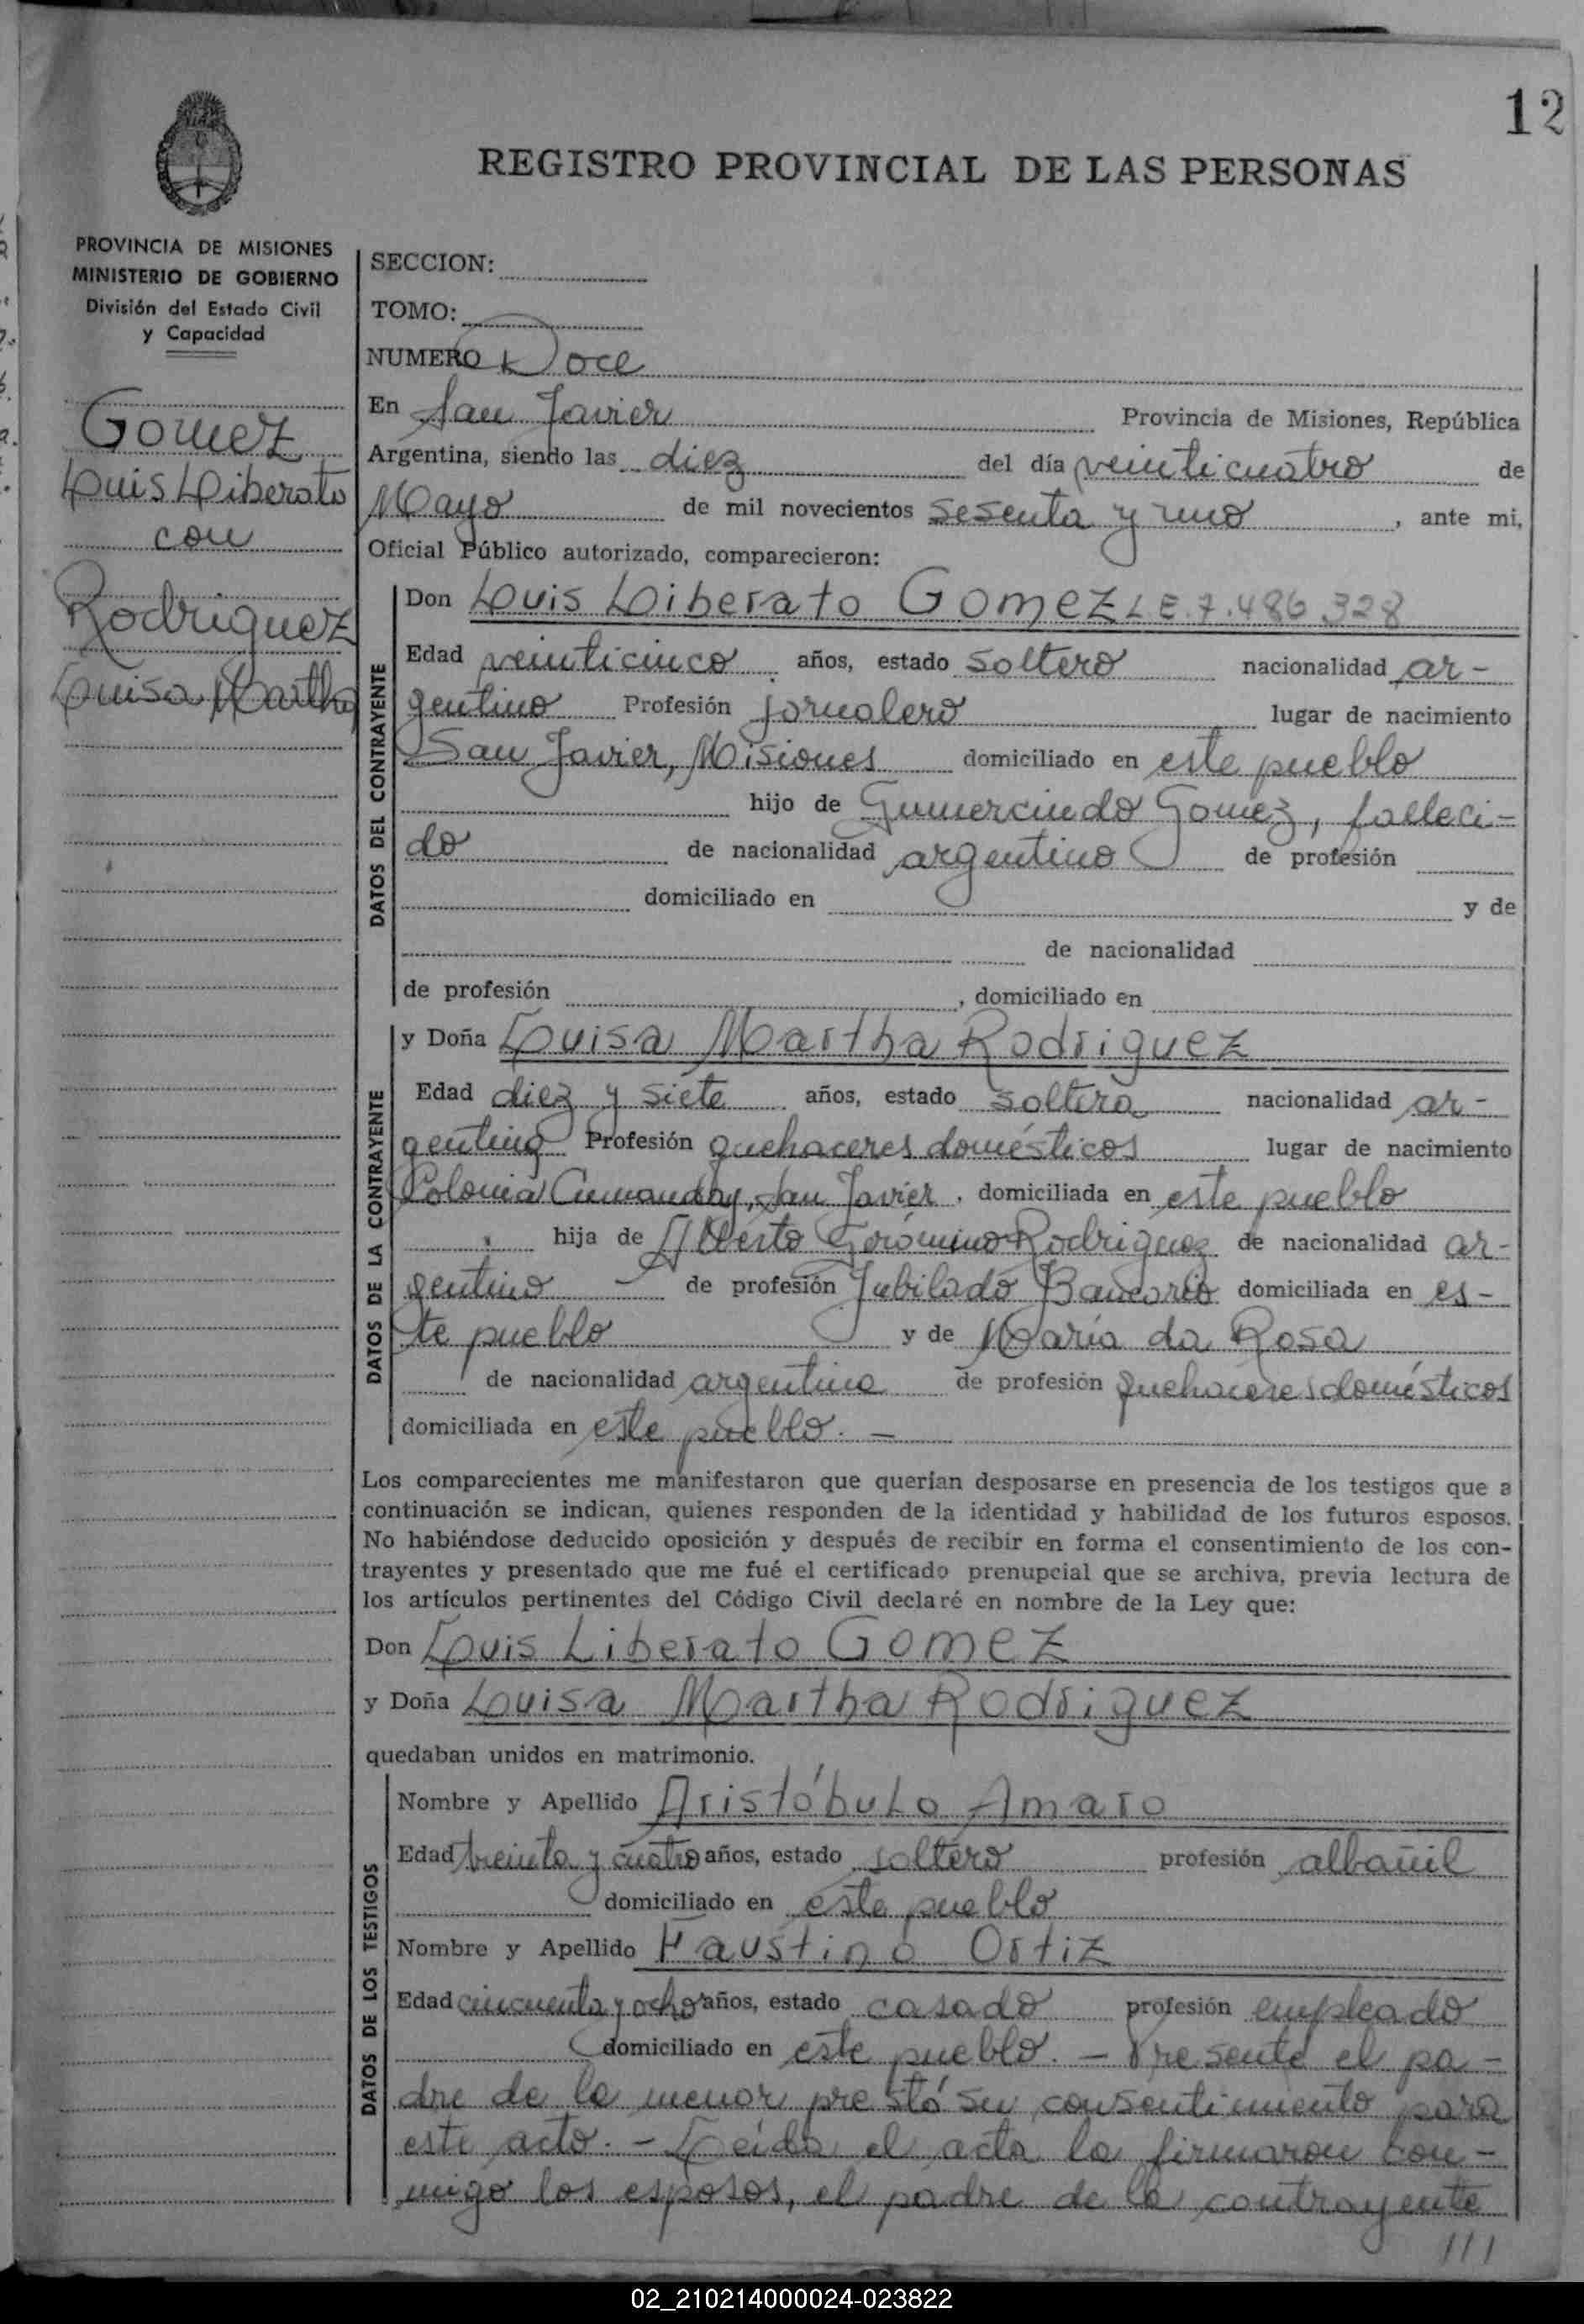 12
REGISTRO PROVINCIAL DE LAS PERSONAS
PROVINCIA DE MISIONES
MINISTERIO DE GOBIERNO
División del Estado Civil
y Capacidad
Gomez
Luis Liberato
con
Rodriguez
Luisa Martha
SECCION:
TOMO:
NUMERO Doce
En San Javier Provincia de Misiones, República
Argentina, siendo las diez del día veinticuatro de
Mayo de mil novecientos sesenta y uno, ante mi,
Oficial Público autorizado, comparecieron:
DATOS DEL CONTRAYENTE
Don Luis Liberato Gomez L.E. 7.486.328
Edad veinticinco años, estado soltero nacionalidad ar-
gentino Profesión jornalero lugar de nacimiento
San Javier, Misiones domiciliado en este pueblo
hijo de Gumercindo Gomez, falleci-
do de nacionalidad argentino de profesión
domiciliado en y de
de nacionalidad
de profesión , domiciliado en
DATOS DE LA CONTRAYENTE
y Doña Luisa Martha Rodriguez
Edad diez y siete años, estado soltera nacionalidad ar-
gentina Profesión quehaceres domésticos lugar de nacimiento
Colonia Cumanday, San Javier, domiciliada en este pueblo
hija de Alberto Gerónimo Rodriguez de nacionalidad ar-
gentino de profesión Jubilado Bancario domiciliada en es-
te pueblo y de María da Rosa
de nacionalidad argentina de profesión quehaceres domésticos
domiciliada en este pueblo. -
Los comparecientes me manifestaron que querían desposarse en presencia de los testigos que a
continuación se indican, quienes responden de la identidad y habilidad de los futuros esposos.
No habiéndose deducido oposición y después de recibir en forma el consentimiento de los con-
trayentes y presentado que me fué el certificado prenupcial que se archiva, previa lectura de
los artículos pertinentes del Código Civil declaré en nombre de la Ley que:
Don Luis Liberato Gomez
y Doña Luisa Martha Rodriguez
quedaban unidos en matrimonio.
DATOS DE LOS TESTIGOS
Nombre y Apellido Aristóbulo Amaro
Edad treinta y cuatro años, estado soltero profesión albañil
domiciliado en este pueblo
Nombre y Apellido Faustino Ortiz
Edad cincuenta y ocho años, estado casado profesión empleado
domiciliado en este pueblo. - Presente el pa-
dre de la menor prestó su consentimiento para
este acto. - Leída el acta la firmaron con-
migo los esposos, el padre de la contrayente
///
02_210214000024-023822